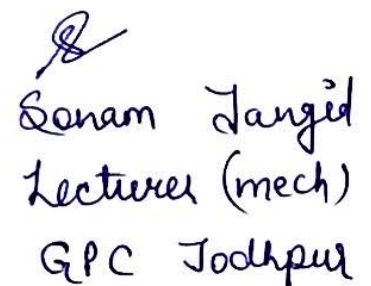 Sonam Jangid
Lecturer (mech)
GPC Jodhpur